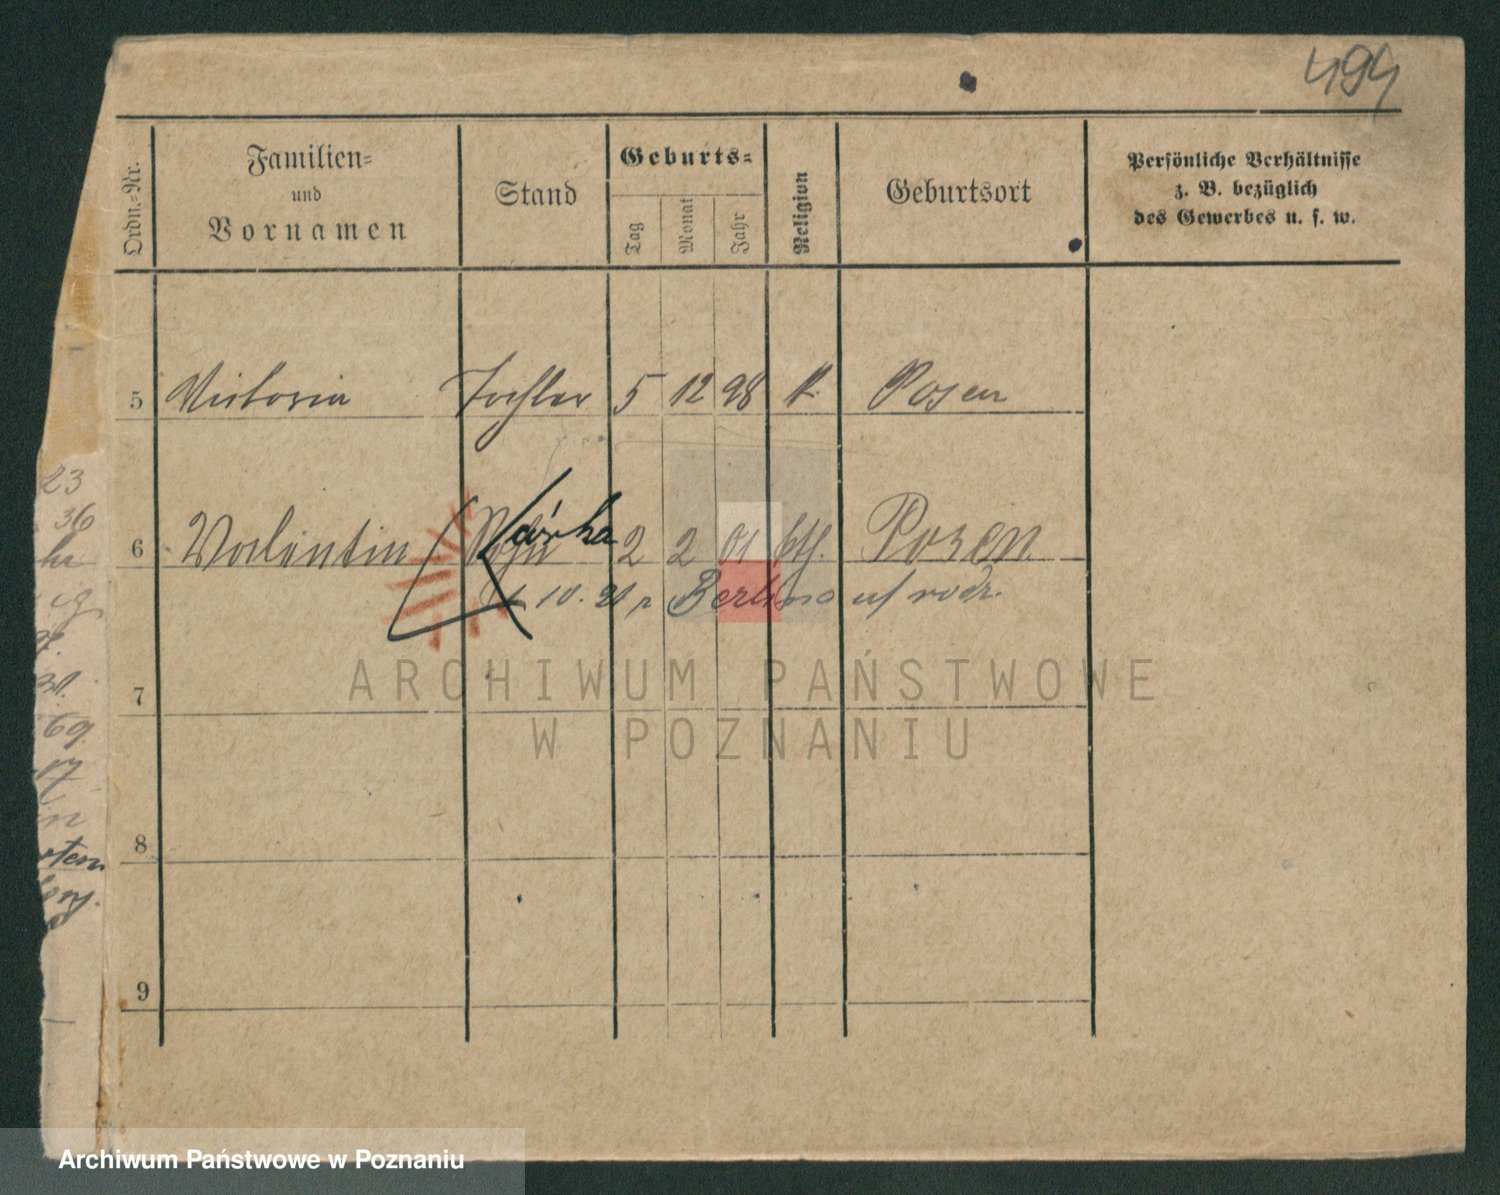 494
Ordn.-Nr.
Familien-
und
Vornamen
Stand
Geburts-
Tag
Monat
Jahr
Religion
Geburtsort
Persönliche Verhältnisse
z. B. bezüglich
des Gewerbes u. s. w.
5 Victoria Tochter 5 12 98 k. Posen
6 Valentin Sohn 2 2 01 kth. Posen
10. 20 Berlina
7
8
9
23
36
69
ARCHIWUM PAŃSTWOWE
W POZNANIU
Archiwum Państwowe w Poznaniu